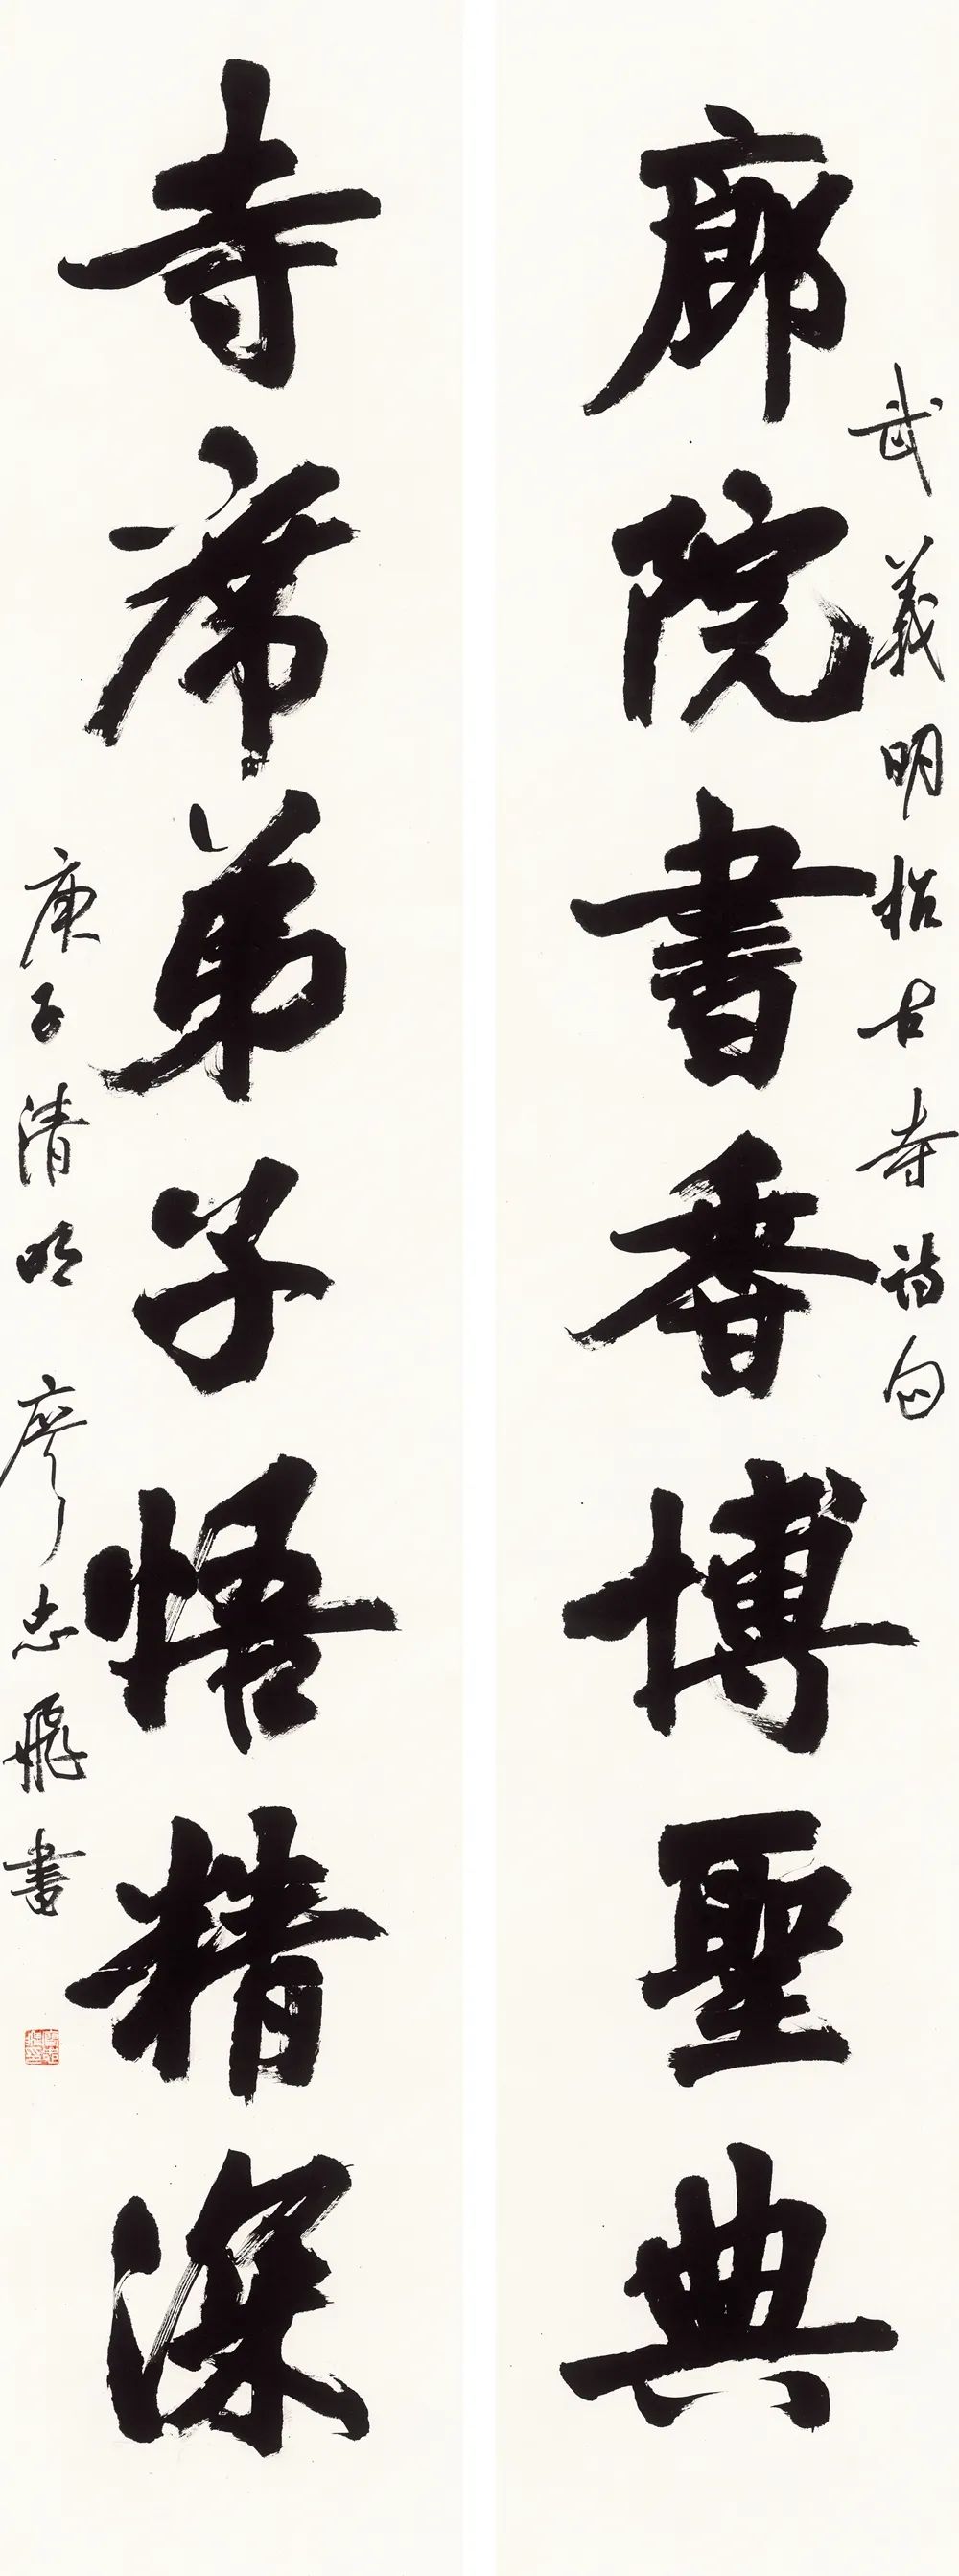 武義明招古寺詩句
廊院書香博聖典
寺席弟子悟精深
庚子清明廖忠飛書